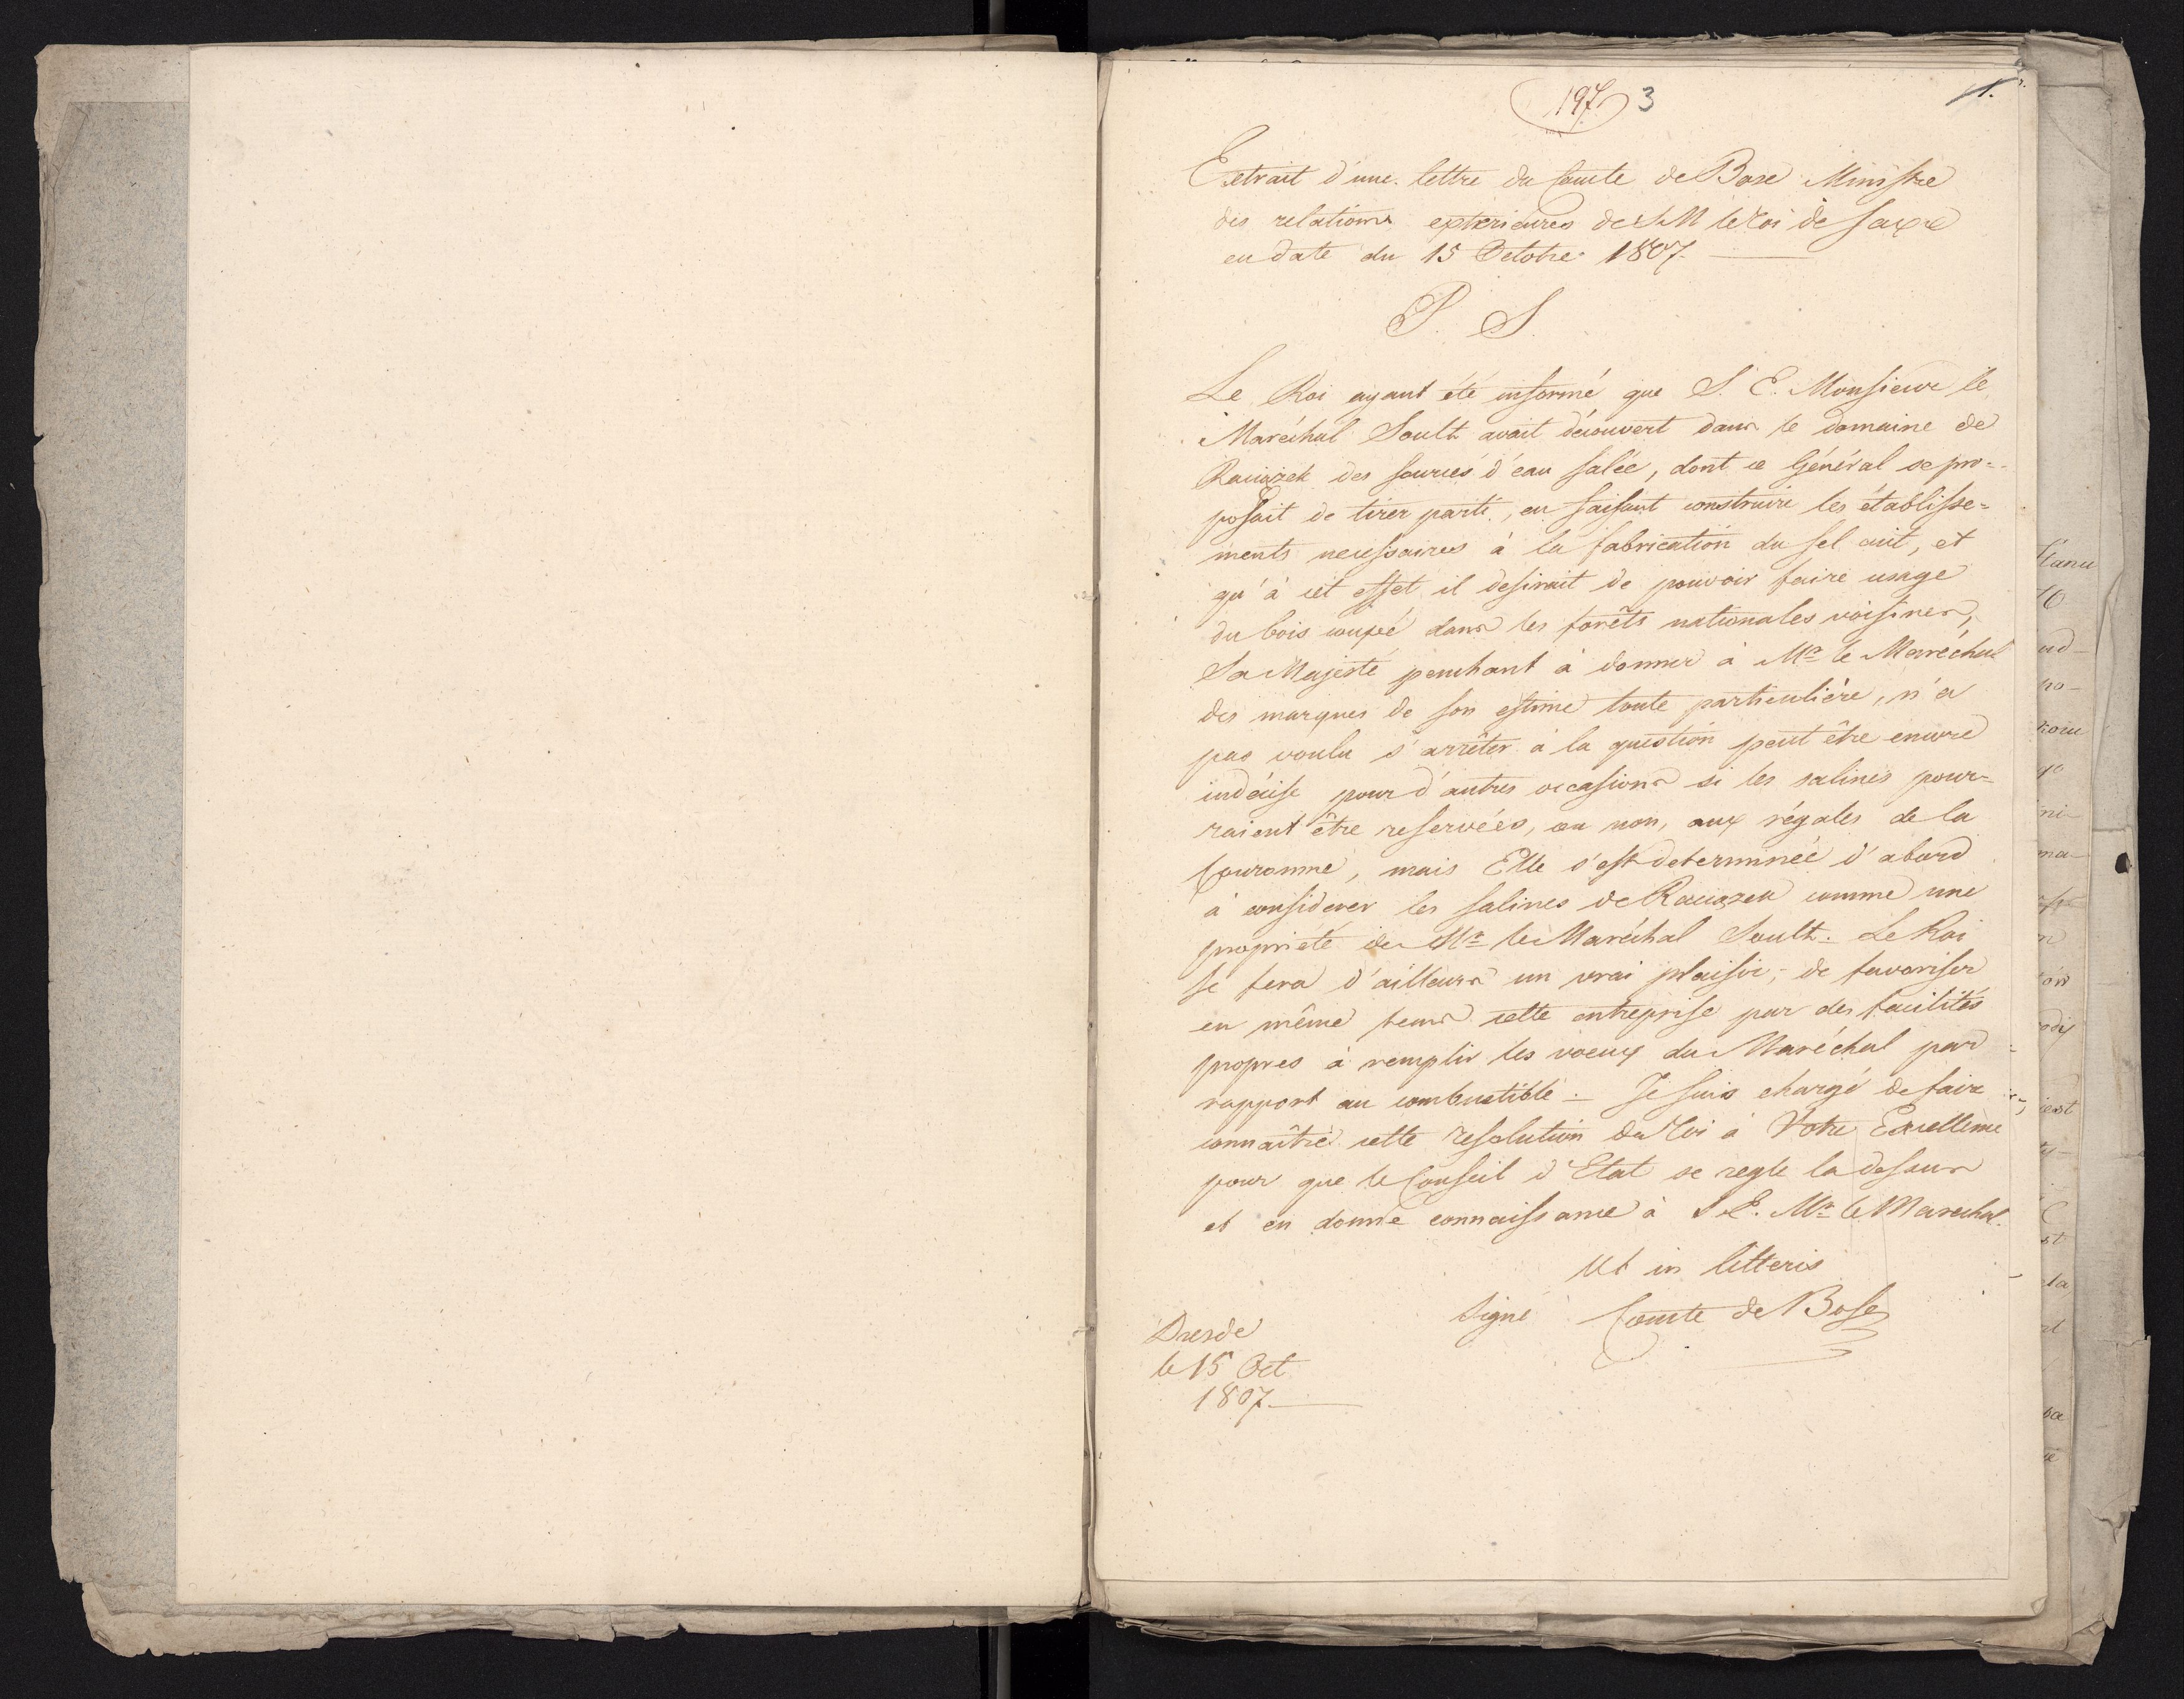 197. 3
1.
Extrait d'une lettre du Comte de Bose Ministre
des relations exterieures de S.M le roi de Saxe
en date du 15 Octobre 1807.
P. S.
Le Roi ayant été informé que S. E. Monsieur le
Maréchal Soult avait découvert dans le domaine de
Raciązek des sources d'eau salée, dont ce Général se pro-
posait de tirer parti, en faisant construire les établisse-
ments necessaires à la fabrication du sel cuit, et
qu'à cet effet il desirait de pouvoir faire usage
du bois coupé dans les forêts nationales voisines,
Sa Majesté penchant à donner à Mr le Maréchal
des marques de son estime toute particulière, n'a
pas voulu s'arrêter à la question peut être encore
indécise pour d'autres occasions si les salines pour-
raient être reservées, ou non, aux régales de la
Couronne, mais Elle s'est determinée d'abord
à considerer les salines de Raciązek comme une
proprieté de Mr le Maréchal Soult. Le Roi
se fera d'ailleurs un vrai plaisir, de favoriser
en même tems cette entreprise par des facilités
propres à remplir les voeux du Maréchal par
rapport au combustible. Je suis chargé de faire
connaître cette resolution du Roi à Votre Excellence
pour que le Conseil d'Etat se regle la dessus
et en donne connaissance à S.E. Mr le Marechal.
Ut in litteris
signé Comte de Bose
Dresde
le 15 Oct
1807.